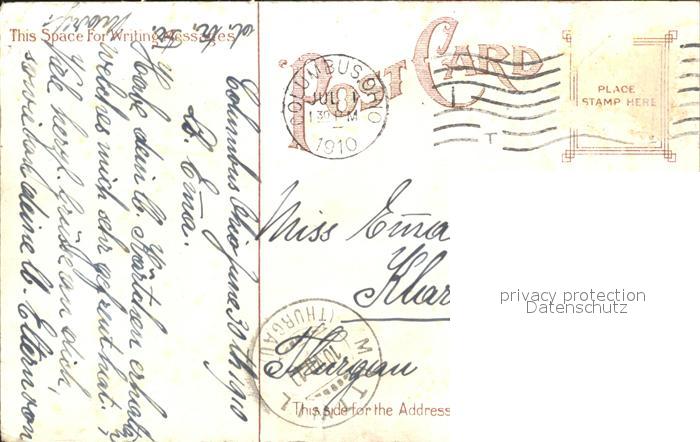 This Space For Writing Messages
POST CARD
COLUMBUS, OHIO
JUL 1
1 30 PM
1910
PLACE
STAMP HERE
Columbus Ohio June 30th 1910
Lb. Em̄a.
Habe dein lb. Kärtchen erhalten
welches mich sehr gefreut hat.
viele herzl. Grüsse an dich,
sowie an deine lb. Eltern von
Miss Em̄a
Klar
Thurgau
(THURGAU)
This side for the Address
privacy protection
Datenschutz